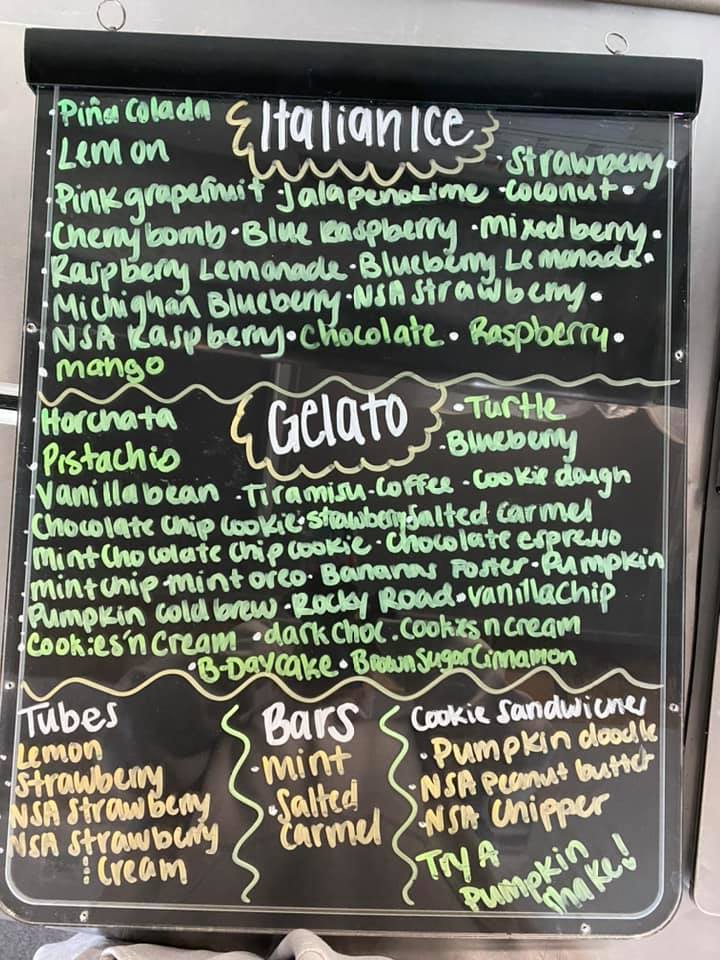 Piña Colada
Italian Ice
Lemon
• Strawberry
Pink grapefruit Jalapeno Lime • Coconut •
Cherry bomb • Blue Raspberry • Mixed berry •
Raspberry Lemonade • Blueberry Lemonade •
Michighan Blueberry • NSA Strawberry •
NSA Raspberry • Chocolate • Raspberry •
mango
Gelato
Horchata
• Turtle
Pistachio
• Blueberry
Vanilla bean • Tiramisu • Coffee • Cookie dough
Chocolate chip cookie • strawberry Salted Carmel
Mint Chocolate chip cookie • Chocolate espresso
mint chip • mint oreo • Bananas Foster • Pumpkin
Pumpkin cold brew • Rocky Road • vanilla Chip
Cookies'n Cream • dark choc • Cookies n cream
• B-Day cake • Brown Sugar Cinnamon
Tubes
Lemon
Strawberry
NSA Strawberry
NSA Strawberry
: Cream
Bars
• Mint
• Salted
Carmel
Cookie Sandwiches
• Pumpkin doodle
• NSA Peanut butter
• NSA Chipper
Try A
Pumpkin
Shake!